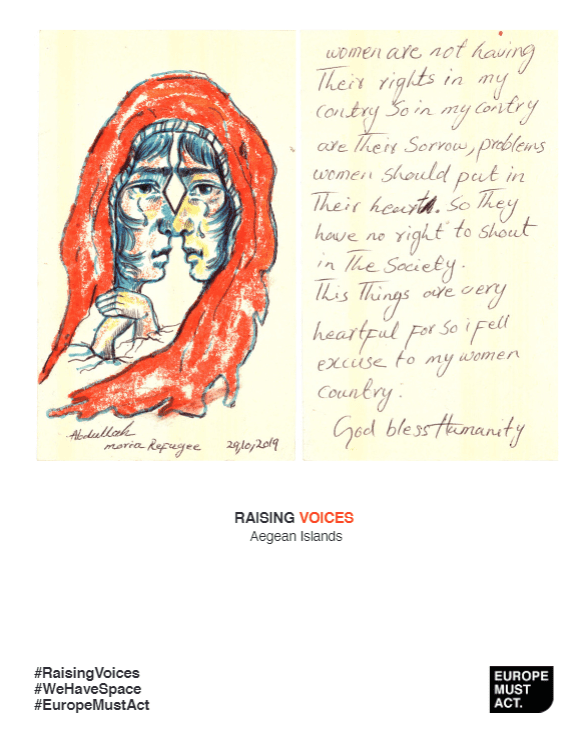 women are not having
Their rights in my
contry So in my contry
are Their Sorrow, problems
women should put in
Their heart. So They
have no right to shout
in The Society.
This Things are very
heartful for So i fell
excuse to my women
country.
God bless Humanity
Abdullah
moria Refugee 29/10/2019
RAISING VOICES
Aegean Islands
#RaisingVoices
#WeHaveSpace
#EuropeMustAct
EUROPE
MUST
ACT.